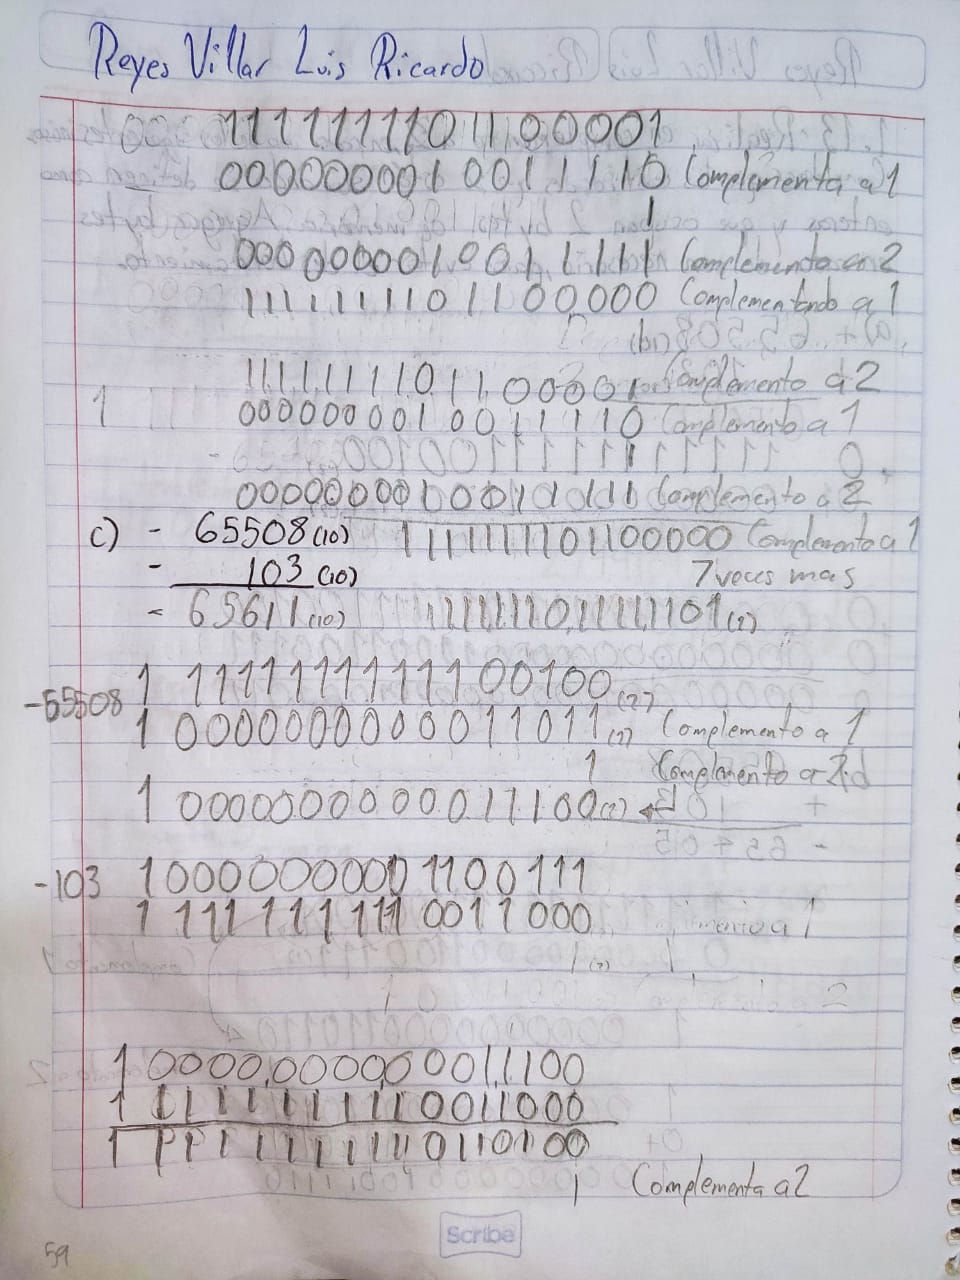 Reyes Villar Luis Ricardo
1111111101100001
0000000010011110 Complementa a 1
1
0000000010011111 Complemento a 2
1111111101100000 Complementando a 1
1111111101100001 Complemento a 2
1 0000000010011110 Complemento a 1
Complemento a 2
c) - 65508(10) 1111111101100000 Complemento a 1
- 103(10) 7 veces mas
- 65611(10)
-65508 1 1111111111100100(2)
1 0000000000011011(2) Complemento a 1
1 Complemento a 2
1 0000000000011100(2)
-103 1 0000000001100111
1 1111111110011000
1 0000000000011100
1 1111111110011000
1 1111111110110100
1 Complementa a 2
Scribe
59